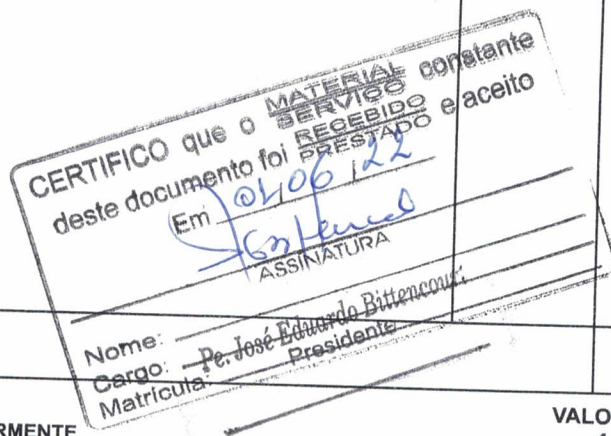 CERTIFICO que o MATERIAL SERVIÇO constante
deste documento foi RECEBIDO PRESTADO e aceito
Em 01/06/22
ASSINATURA
Nome:
Cargo: Pe. José Eduardo Bittencourt
Matrícula: Presidente
RMENTE
VALO